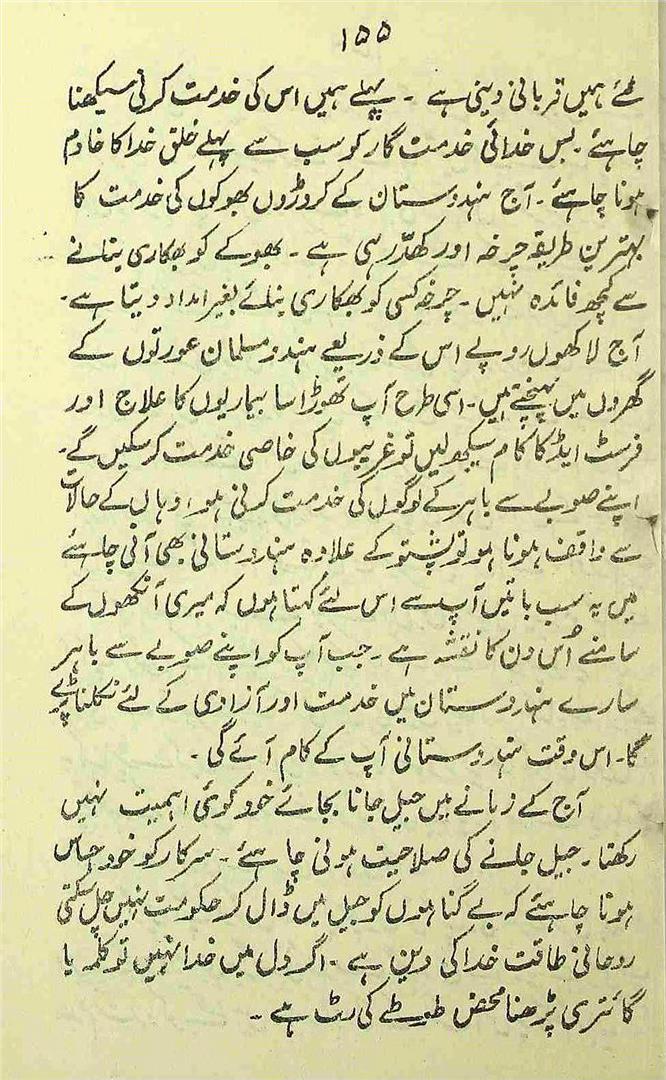 ۱۵۵
لئے ہمیں قربانی دینی ہے ۔ پہلے ہمیں اس کی خدمت کرنی سیکھنا
چاہئے ۔ بس خدائی خدمت گار کو سب سے پہلے خلق خدا کا خادم
ہونا چاہئے ۔ آج ہندوستان کے کروڑوں بھوکوں کی خدمت کا
بہترین طریقہ چرخہ اور کھدّر رہی ہے ۔ بھوکے کو بھکاری بنانے
سے کچھ فائدہ نہیں ۔ چرخہ کسی کو بھکاری بنائے بغیر امداد دیتا ہے ۔
آج لاکھوں روپے اس کے ذریعے ہندو مسلمان عورتوں کے
گھروں میں پہنچتے ہیں ۔ اسی طرح آپ تھوڑا سا بیماریوں کا علاج اور
فرسٹ ایڈ کا کام سیکھ لیں تو غریبوں کی خاصی خدمت کر سکیں گے ۔
اپنے صوبے سے باہر کے لوگوں کی خدمت کرنی ہو اوہاں کے حالات
سے واقف ہونا ہو تو پشتو کے علاوہ ہندوستانی بھی آنی چاہئے
میں یہ سب باتیں آپ سے اس لئے کہتا ہوں کہ میری آنکھوں کے
سامنے اُس دن کا نقشہ ہے ۔ جب آپ کو اپنے صوبے سے باہر
سارے ہندوستان میں خدمت اور آزادی کے لئے نکلنا پڑے
گا ۔ اس وقت ہندوستانی آپ کے کام آئے گی ۔
آج کے زمانے میں جیل جانا بجائے خود کوئی اہمیت نہیں
رکھتا ۔ جیل جانے کی صلاحیت ہونی چاہئے ۔ سرکار کو خود حساس
ہونا چاہئے کہ بے گناہوں کو جیل میں ڈال کر حکومت نہیں چل سکتی
روحانی طاقت خدا کی دین ہے ۔ اگر دل میں خدا نہیں تو کلمہ یا
گائتری پڑھنا محض طوطے کی رٹ ہے ۔